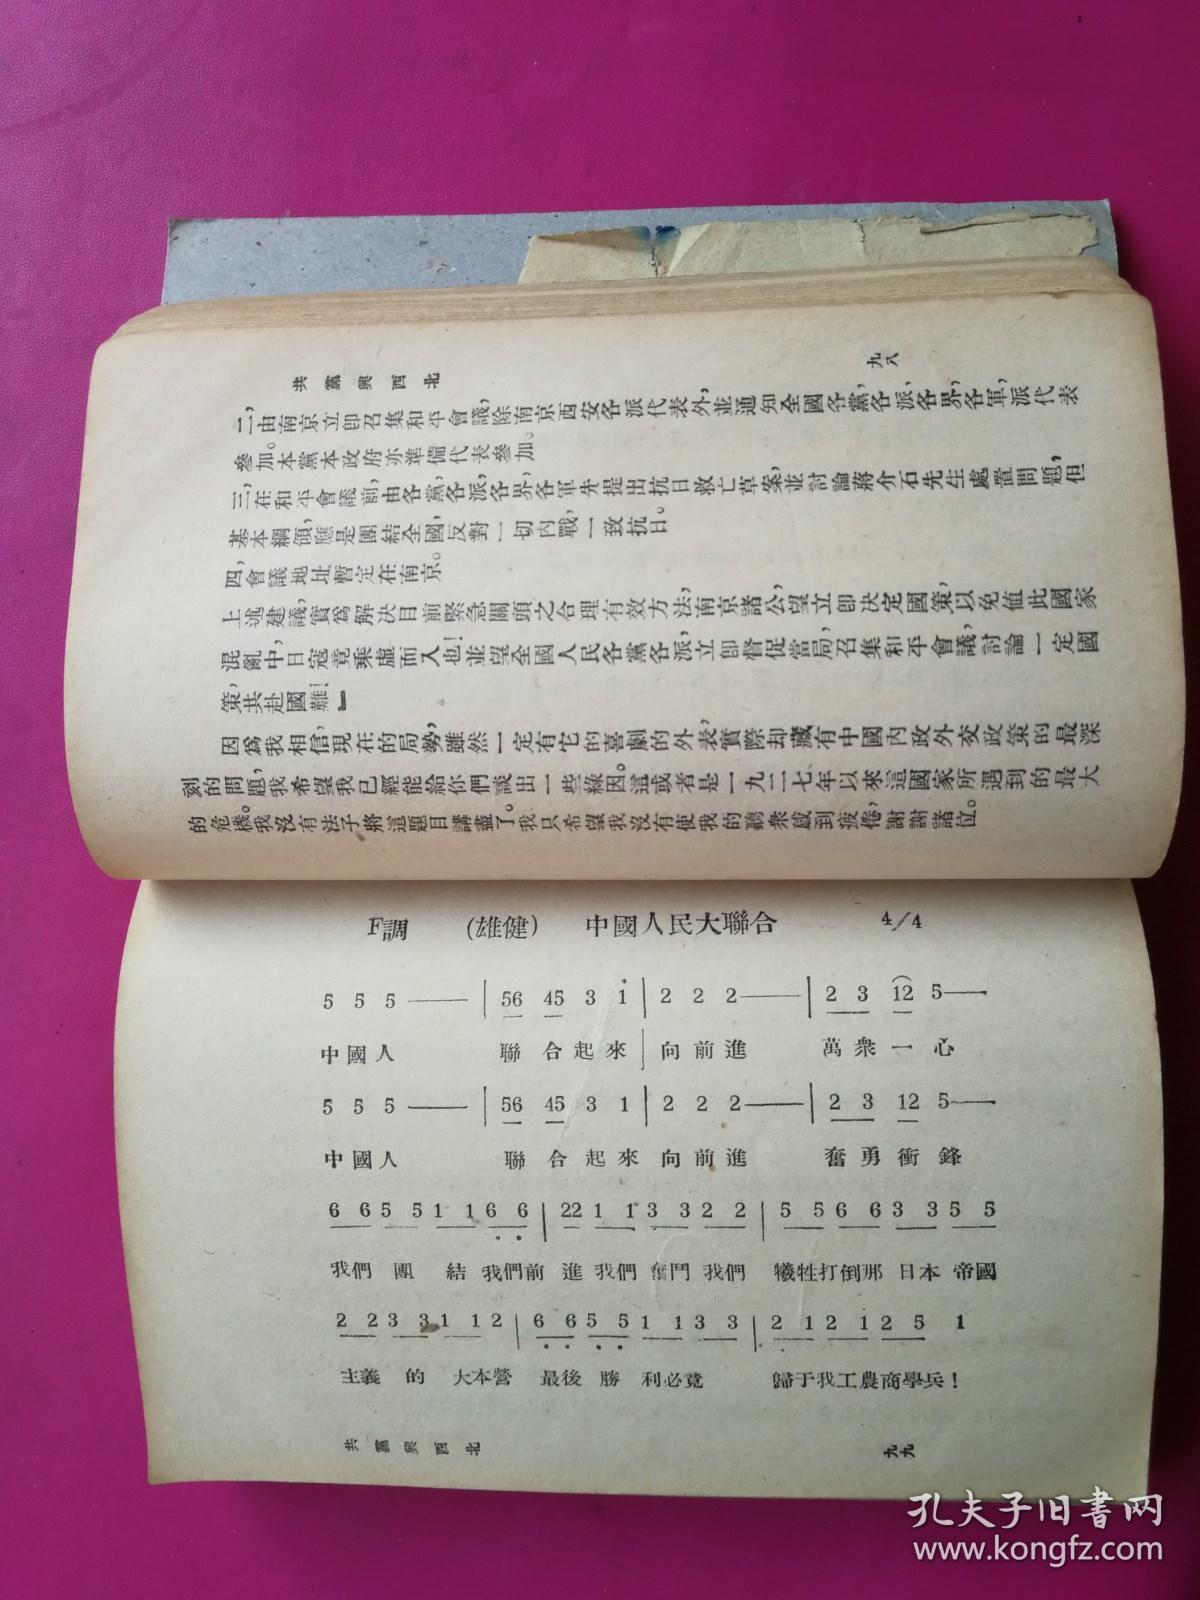 共黨與西北
九八
二，由南京立卽召集和平會議，除南京西安各派代表外，並通知全國各黨，各派，各界，各軍，派代表
參加。本黨本政府亦準備代表參加。
三，在和平會議前，由各黨，各派，各界各軍先提出抗日救亡草案，並討論蔣介石先生處置問題，但
基本綱領，應是團結全國，反對一切內戰，一致抗日。
四，會議地址暫定在南京。
上述建議，實爲解決目前緊急關頭之合理有效方法，南京諸公，望立卽決定國策，以免值此國家
混亂中日寇竟乘虛而入也！並望全國人民各黨各派，立卽督促當局，召集和平會議，討論一定國
策，共赴國難！』
因爲我相信，現在的局勢，雖然一定有它的喜劇的外表，實際却藏有中國內政外交政策的最深
刻的問題，我希望我已經能給你們談出一些緣因。這或者是一九二七年以來這國家所遇到的最大
的危機。我沒有法子將這題目講盡了。我只希望我沒有使我的聽衆感到疲倦，謝謝諸位。
F調 (雄健) 中國人民大聯合 4/4
5 5 5 —— | 56 45 3 i | 2 2 2 —— | 2 3 12 5 —
中國人 聯合起來 | 向前進 萬衆一心
5 5 5 —— | 56 45 3 1 | 2 2 2 —— | 2 3 12 5 —
中國人 聯合起來 向前進 奮勇衝鋒
6 6 5 5 1 1 6 6 | 22 1 1 3 3 2 2 | 5 5 6 6 3 3 5 5
我們團結我們前進我們奮鬥我們 犧牲打倒那日本帝國
2 2 3 3 1 1 2 | 6 6 5 5 1 1 3 3 | 2 1 2 1 2 5 1
主義的大本營 最後勝利必竟 歸于我工農商學兵！
共黨與西北
九九
孔夫子旧书网
www.kongfz.com